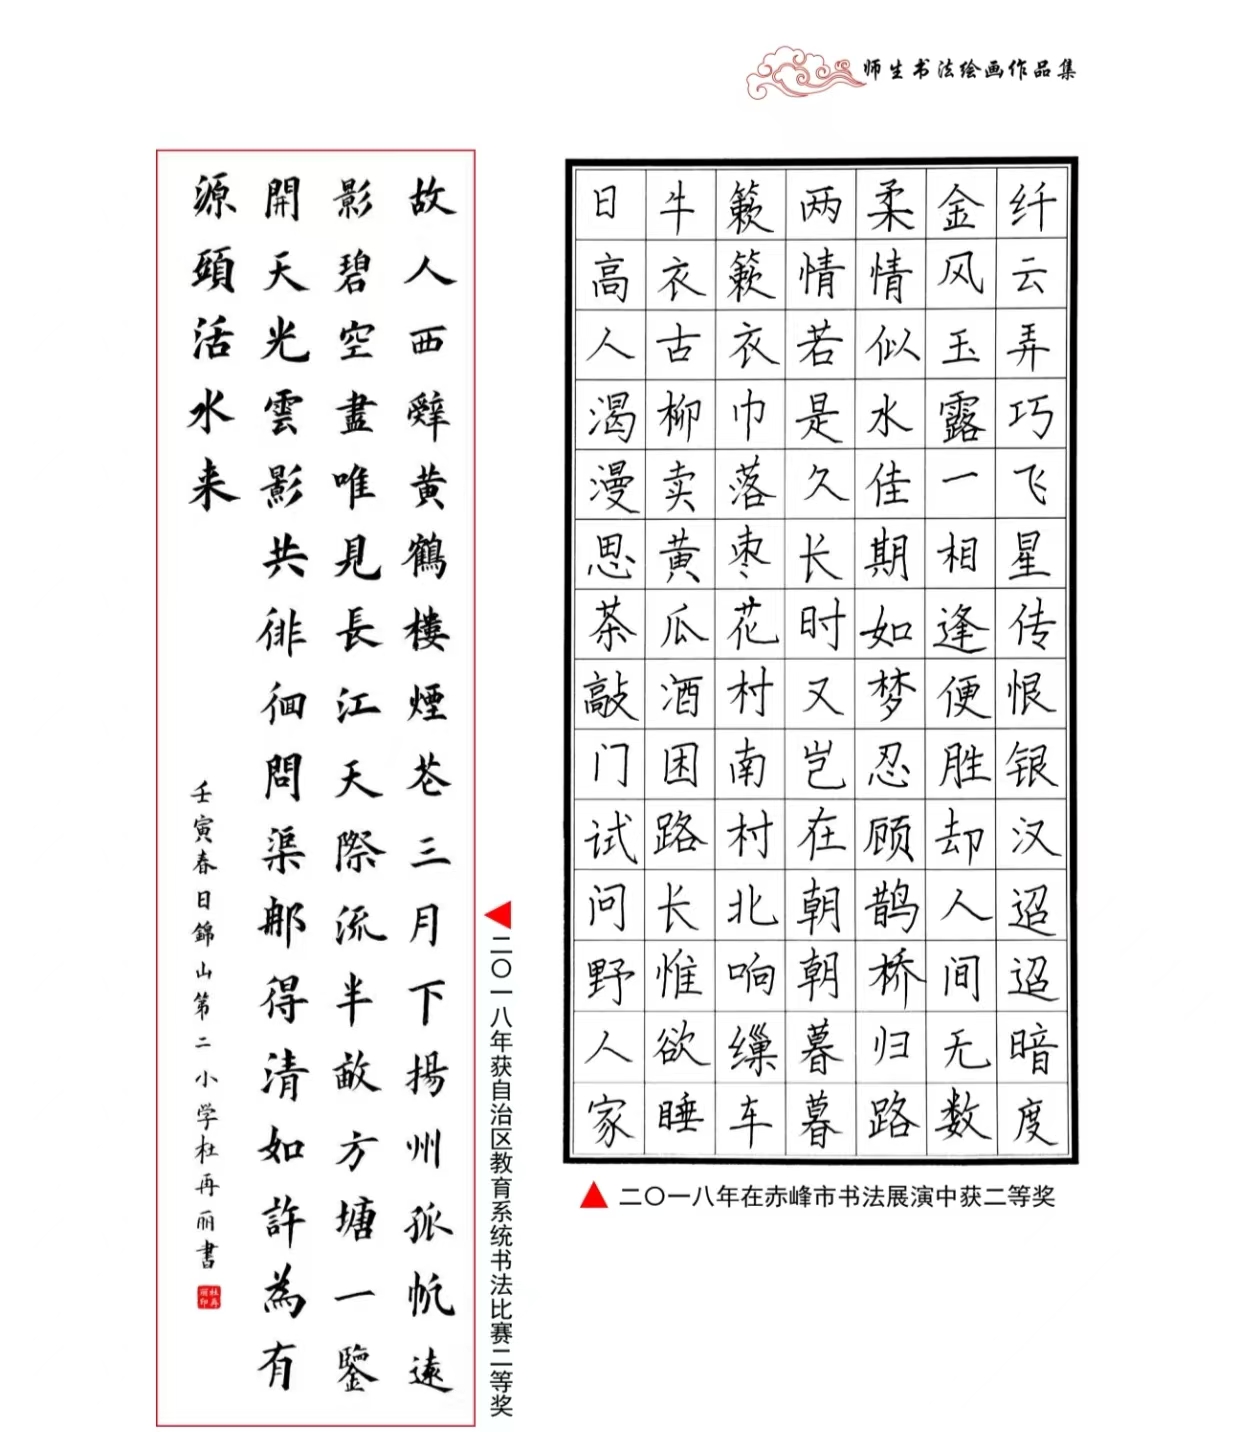 师生书法绘画作品集
故人西辭黄鶴樓煙花三月下揚州孤帆遠
影碧空盡唯見長江天際流半畝方塘一鑒
開天光雲影共徘徊問渠那得清如許為有
源頭活水来
壬寅春日錦山第二小学杜再丽書
杜再丽印
二〇一八年获自治区教育系统书法比赛二等奖
纤云弄巧飞星传恨银汉迢迢暗度
金风玉露一相逢便胜却人间无数
柔情似水佳期如梦忍顾鹊桥归路
两情若是久长时又岂在朝朝暮暮
簌簌衣巾落枣花村南村北响缫车
牛衣古柳卖黄瓜酒困路长惟欲睡
日高人渴漫思茶敲门试问野人家
二〇一八年在赤峰市书法展演中获二等奖